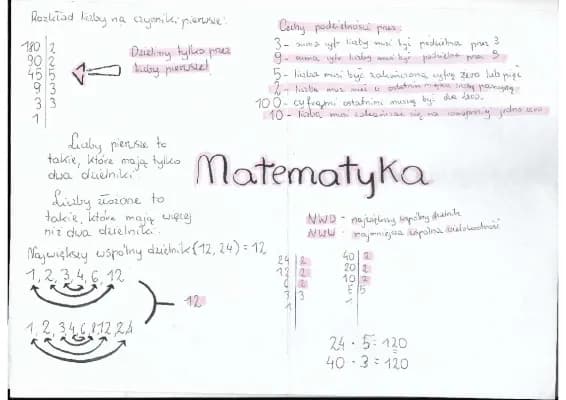 Rozkład liczby na czynniki pierwsze:
180 | 2
90 | 2
45 | 5
9 | 3
3 | 3
1
Dzielimy tylko przez
liczby pierwsze!
Liczby pierwsze to
takie, które mają tylko
dwa dzielniki.
Liczby złożone to
takie, które mają więcej
niż dwa dzielniki.
Największy wspólny dzielnik (12, 24) = 12
1, 2, 3, 4, 6, 12
12
1, 2, 3, 4, 6, 8, 12, 24
Matematyka
Cechy podzielności przez:
3 - suma cyfr liczby musi być podzielna przez 3
9 - suma cyfr liczby musi być podzielna przez 9
5 - liczba musi być zakończona cyfrą zero lub pięć
2 - liczba musi mieć w ostatnim miejscu liczbę parzystą
100 - cyframi ostatnimi muszą być dwa zera.
10 - liczba musi zakończać się na co najmniej jedno zero
NWD - największy wspólny dzielnik
NWW - najmniejsza wspólna wielokrotność
24 | 2
12 | 2
6 | 2
3 | 3
1
40 | 2
20 | 2
10 | 2
5 | 5
1
24 · 5 = 120
40 · 3 = 120